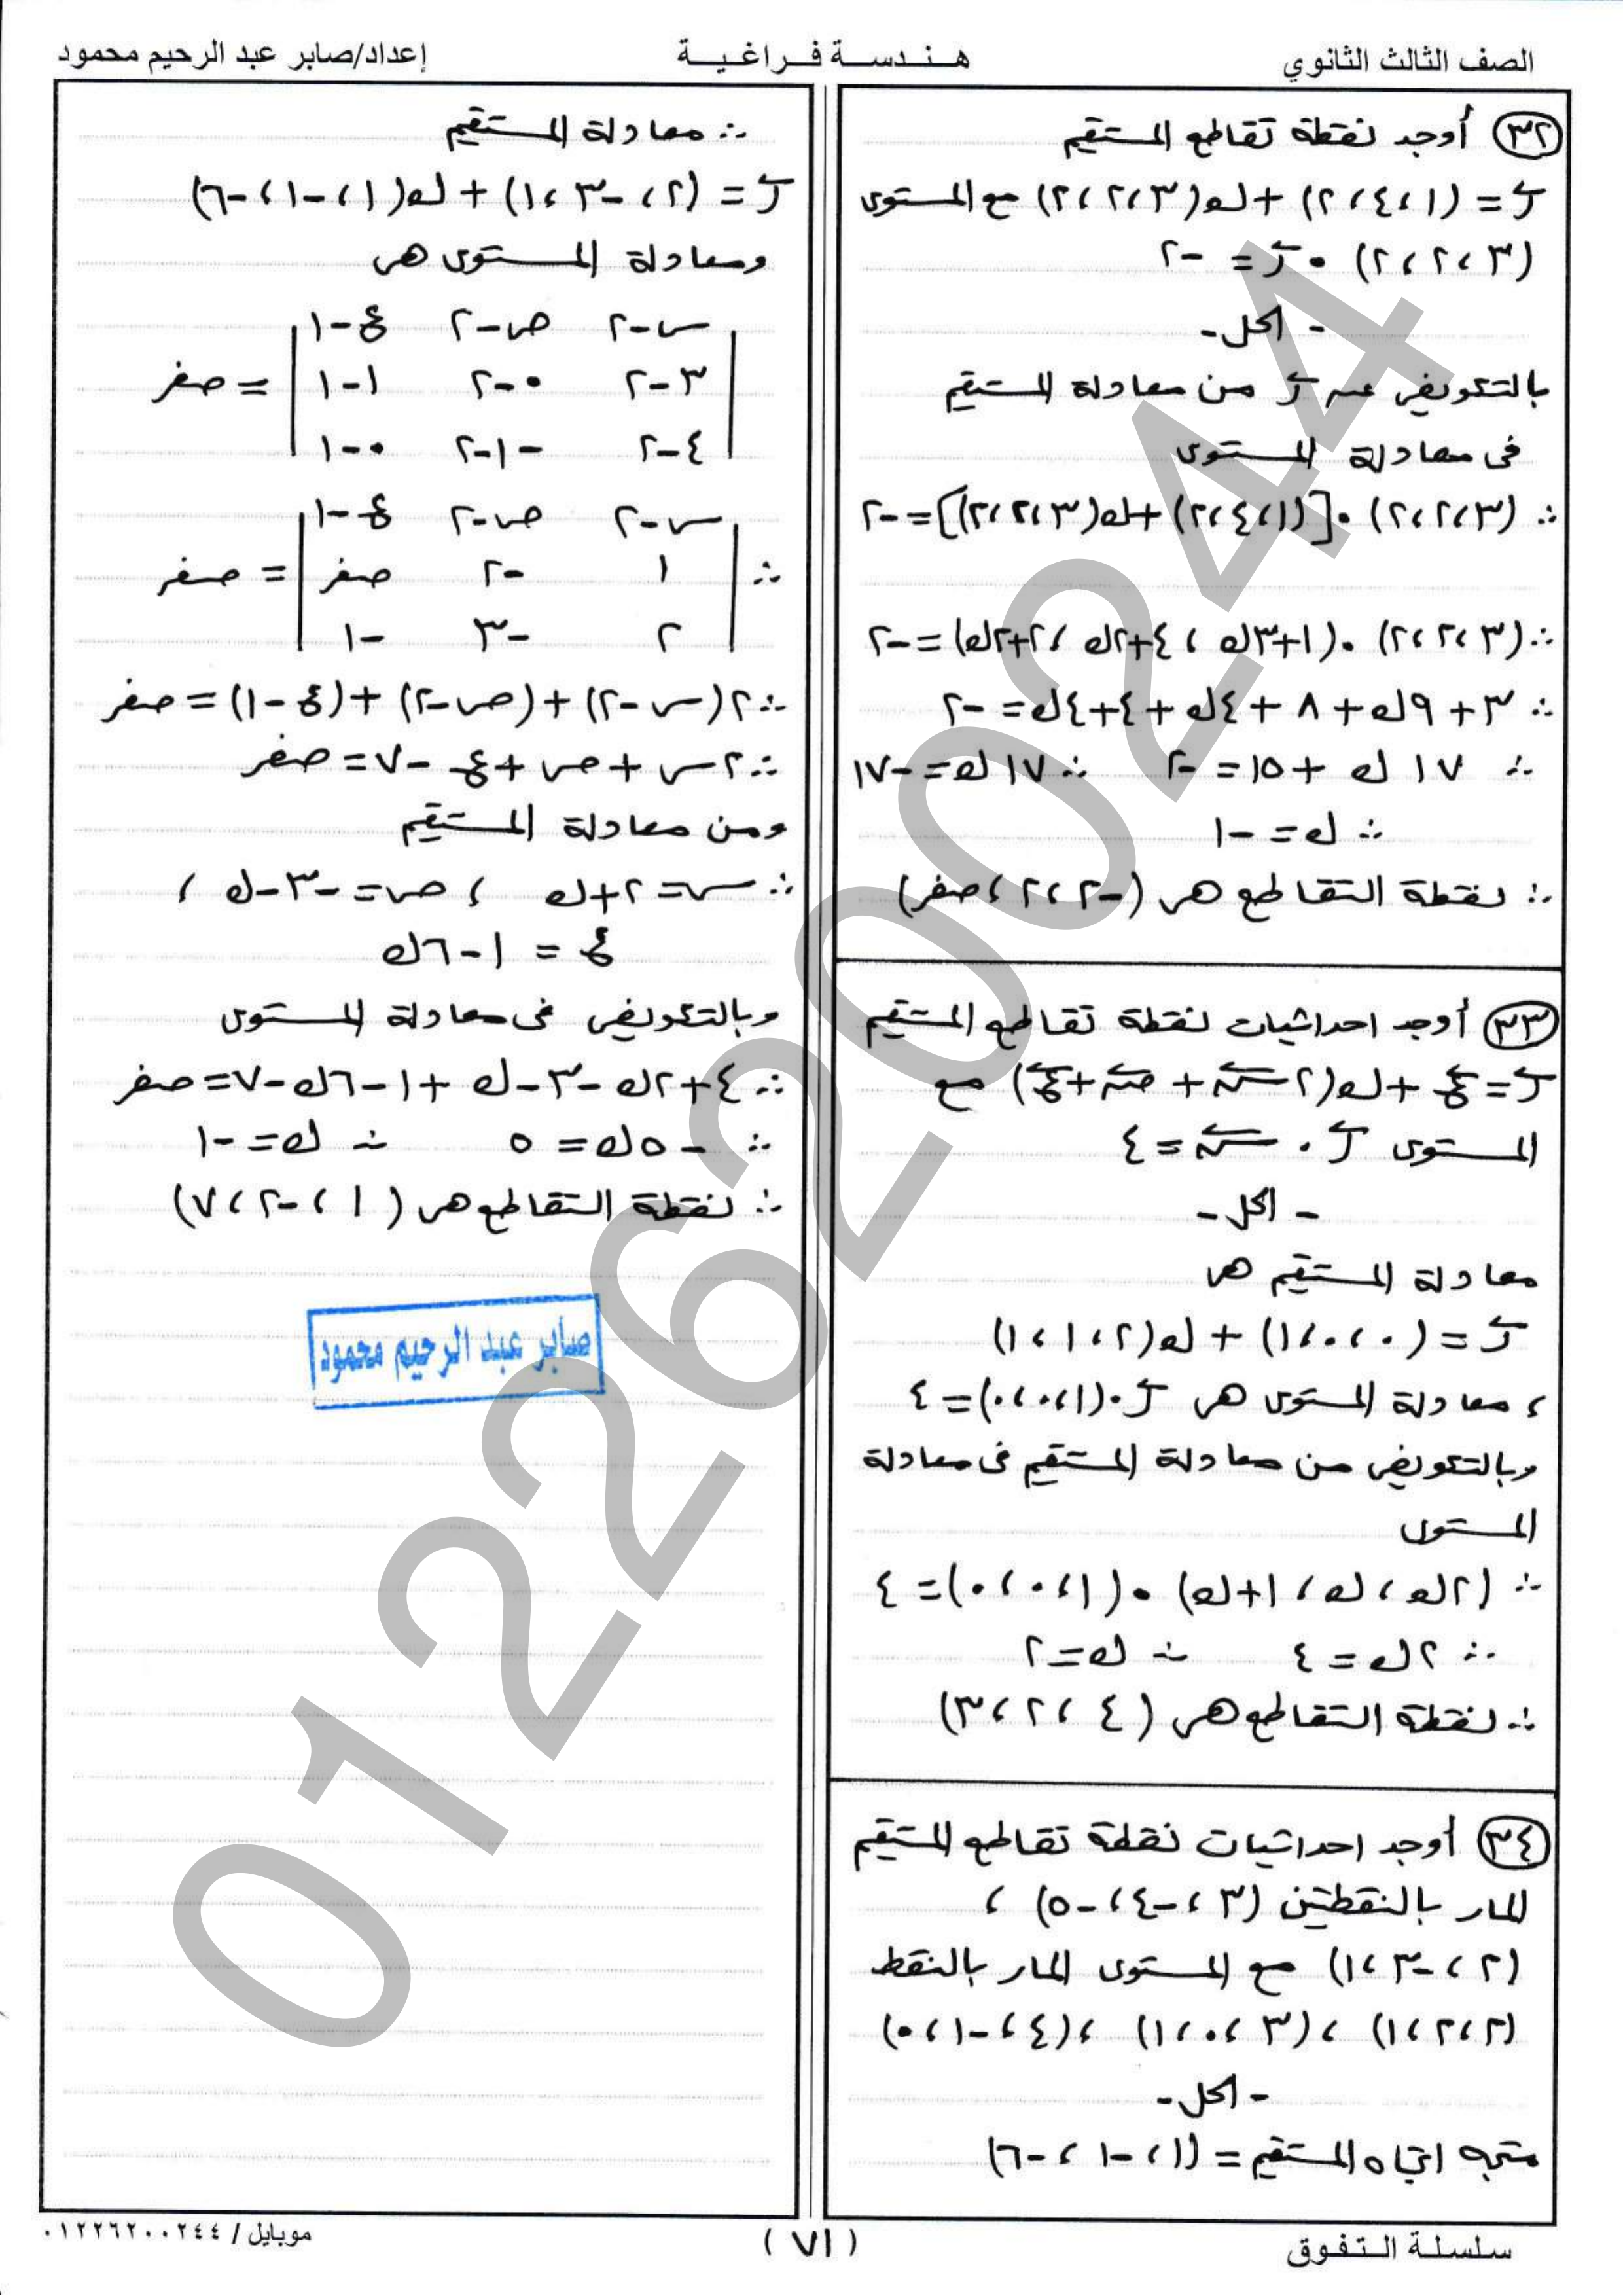 الصف الثالث الثانوي
هـنـدسـة فـراغـيـة
إعداد/صابر عبد الرحيم محمود
(٣٢) أوجد نقطة تقاطع المستقيم
ر = (١ ، ٤ ، ٢) + ك(٣ ، ٢ ، ٢) مع المستوى
(٣ ، ٢ ، ٢) • ر = -٢
- الحل -
بالتعويض عن ر من معادلة المستقيم
فى معادلة المستوى
∴ (٣ ، ٢ ، ٢) • [(١ ، ٤ ، ٢) + ك(٣ ، ٢ ، ٢)] = -٢
∴ (٣ ، ٢ ، ٢) • (١+٣ك ، ٤+٢ك ، ٢+٢ك) = -٢
∴ ٣ + ٩ك + ٨ + ٤ك + ٤ + ٤ك = -٢
∴ ١٧ ك + ١٥ = -٢ ∴ ١٧ ك = -١٧
∴ ك = -١
∴ نقطة التقاطع هى (-٢ ، ٢ ، صفر)
(٣٣) أوجد احداثيات نقطة تقاطع المستقيم
ر = ع + ك(٢ س + ص + ع) مع
المستوى ر • س = ٤
- الحل -
معادلة المستقيم هى
ر = (٠ ، ٠ ، ١) + ك(٢ ، ١ ، ١)
، معادلة المستوى هى ر • (١ ، ٠ ، ٠) = ٤
وبالتعويض من معادلة المستقيم فى معادلة
المستوى
∴ (٢ك ، ك ، ١+ك) • (١ ، ٠ ، ٠) = ٤
∴ ٢ك = ٤ ∴ ك = ٢
∴ نقطة التقاطع هى (٤ ، ٢ ، ٣)
(٣٤) أوجد احداثيات نقطة تقاطع المستقيم
المار بالنقطتين (٣ ، -٤ ، -٥) ،
(٢ ، -٣ ، ١) مع المستوى المار بالنقط
(٢ ، ٢ ، ١) ، (٣ ، ٠ ، ١) ، (٤ ، -١ ، ٠)
- الحل -
متجه اتجاه المستقيم = (١ ، -١ ، -٦)
∴ معادلة المستقيم
ر = (٢ ، -٣ ، ١) + ك(١ ، -١ ، -٦)
ومعادلة المستوى هى
| س-٢ ص-٢ ع-١ |
| ٣-٢ ٠-٢ ١-١ | = صفر
| ٤-٢ -١-٢ ٠-١ |
| س-٢ ص-٢ ع-١ |
∴ | ١ -٢ صفر | = صفر
| ٢ -٣ -١ |
∴ ٢(س-٢) + (ص-٢) + (ع-١) = صفر
∴ ٢س + ص + ع - ٧ = صفر
ومن معادلة المستقيم
∴ س = ٢+ك ، ص = -٣-ك ،
ع = ١-٦ك
وبالتعويض فى معادلة المستوى
∴ ٤+٢ك-٣-ك+١-٦ك-٧ = صفر
∴ -٥ك = ٥ ∴ ك = -١
∴ نقطة التقاطع هى (١ ، -٢ ، ٧)
صابر عبد الرحيم محمود
01226200244
سلسلة الـتـفـوق
(٧١)
موبايل / ٠١٢٢٦٢٠٠٢٤٤